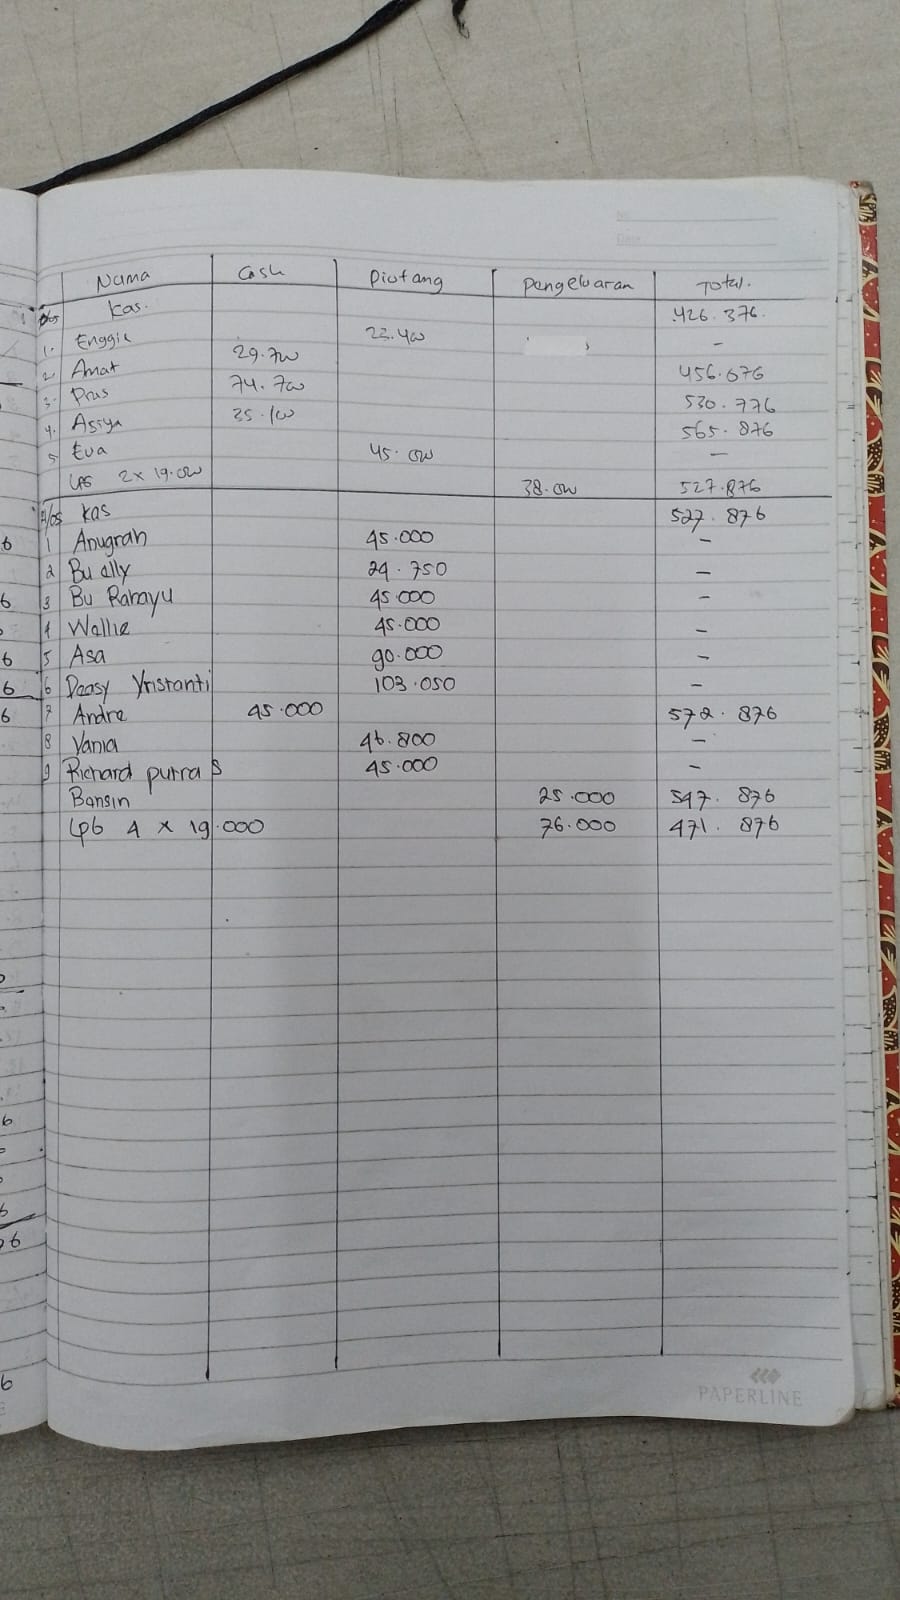 Nama Cash Piutang Pengeluaran Total.
Kas. 426.376.
1. Enggie 23.400 -
2. Amat 29.700 456.076
3. Pras 74.700 530.776
4. Assya 35.100 565.876
5 Eva 45.000 -
LPG 2 x 19.000 38.000 527.876
2/05 Kas 527.876
1 Anugrah 45.000 -
2 Bu elly 24.750 -
3 Bu Rahayu 45.000 -
4 Wallie 45.000 -
5 Asa 90.000 -
6 Deasy Yristanti 103.050 -
7 Andre 45.000 572.876
8 Vania 46.800 -
9 Richard putra S 45.000 -
Bensin 25.000 547.876
Lpg 4 x 19.000 76.000 471.876
PAPERLINE